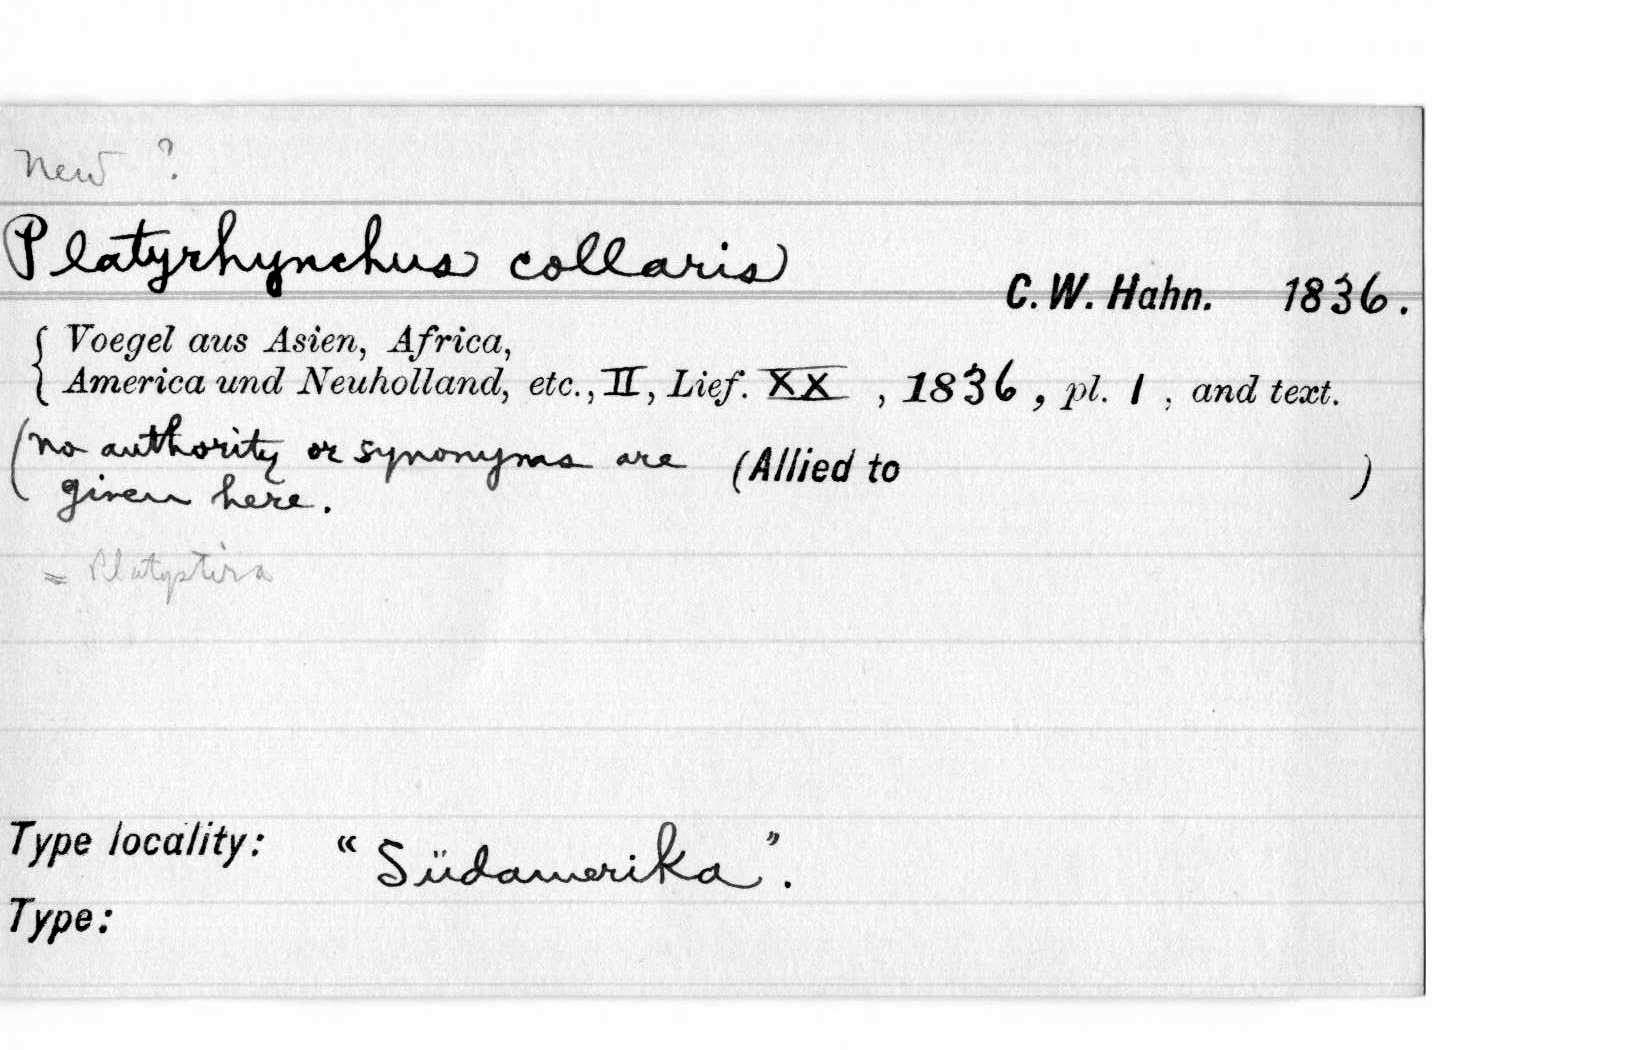 New ?
Platyrhynchus collaris
C. W. Hahn. 1836.
{ Voegel aus Asien, Africa,
America und Neuholland, etc., II, Lief. XX , 1836 , pl. 1 , and text.
(no authority or synonyms are (Allied to )
given here.
= Platyptira
Type locality: "Südamerika".
Type: